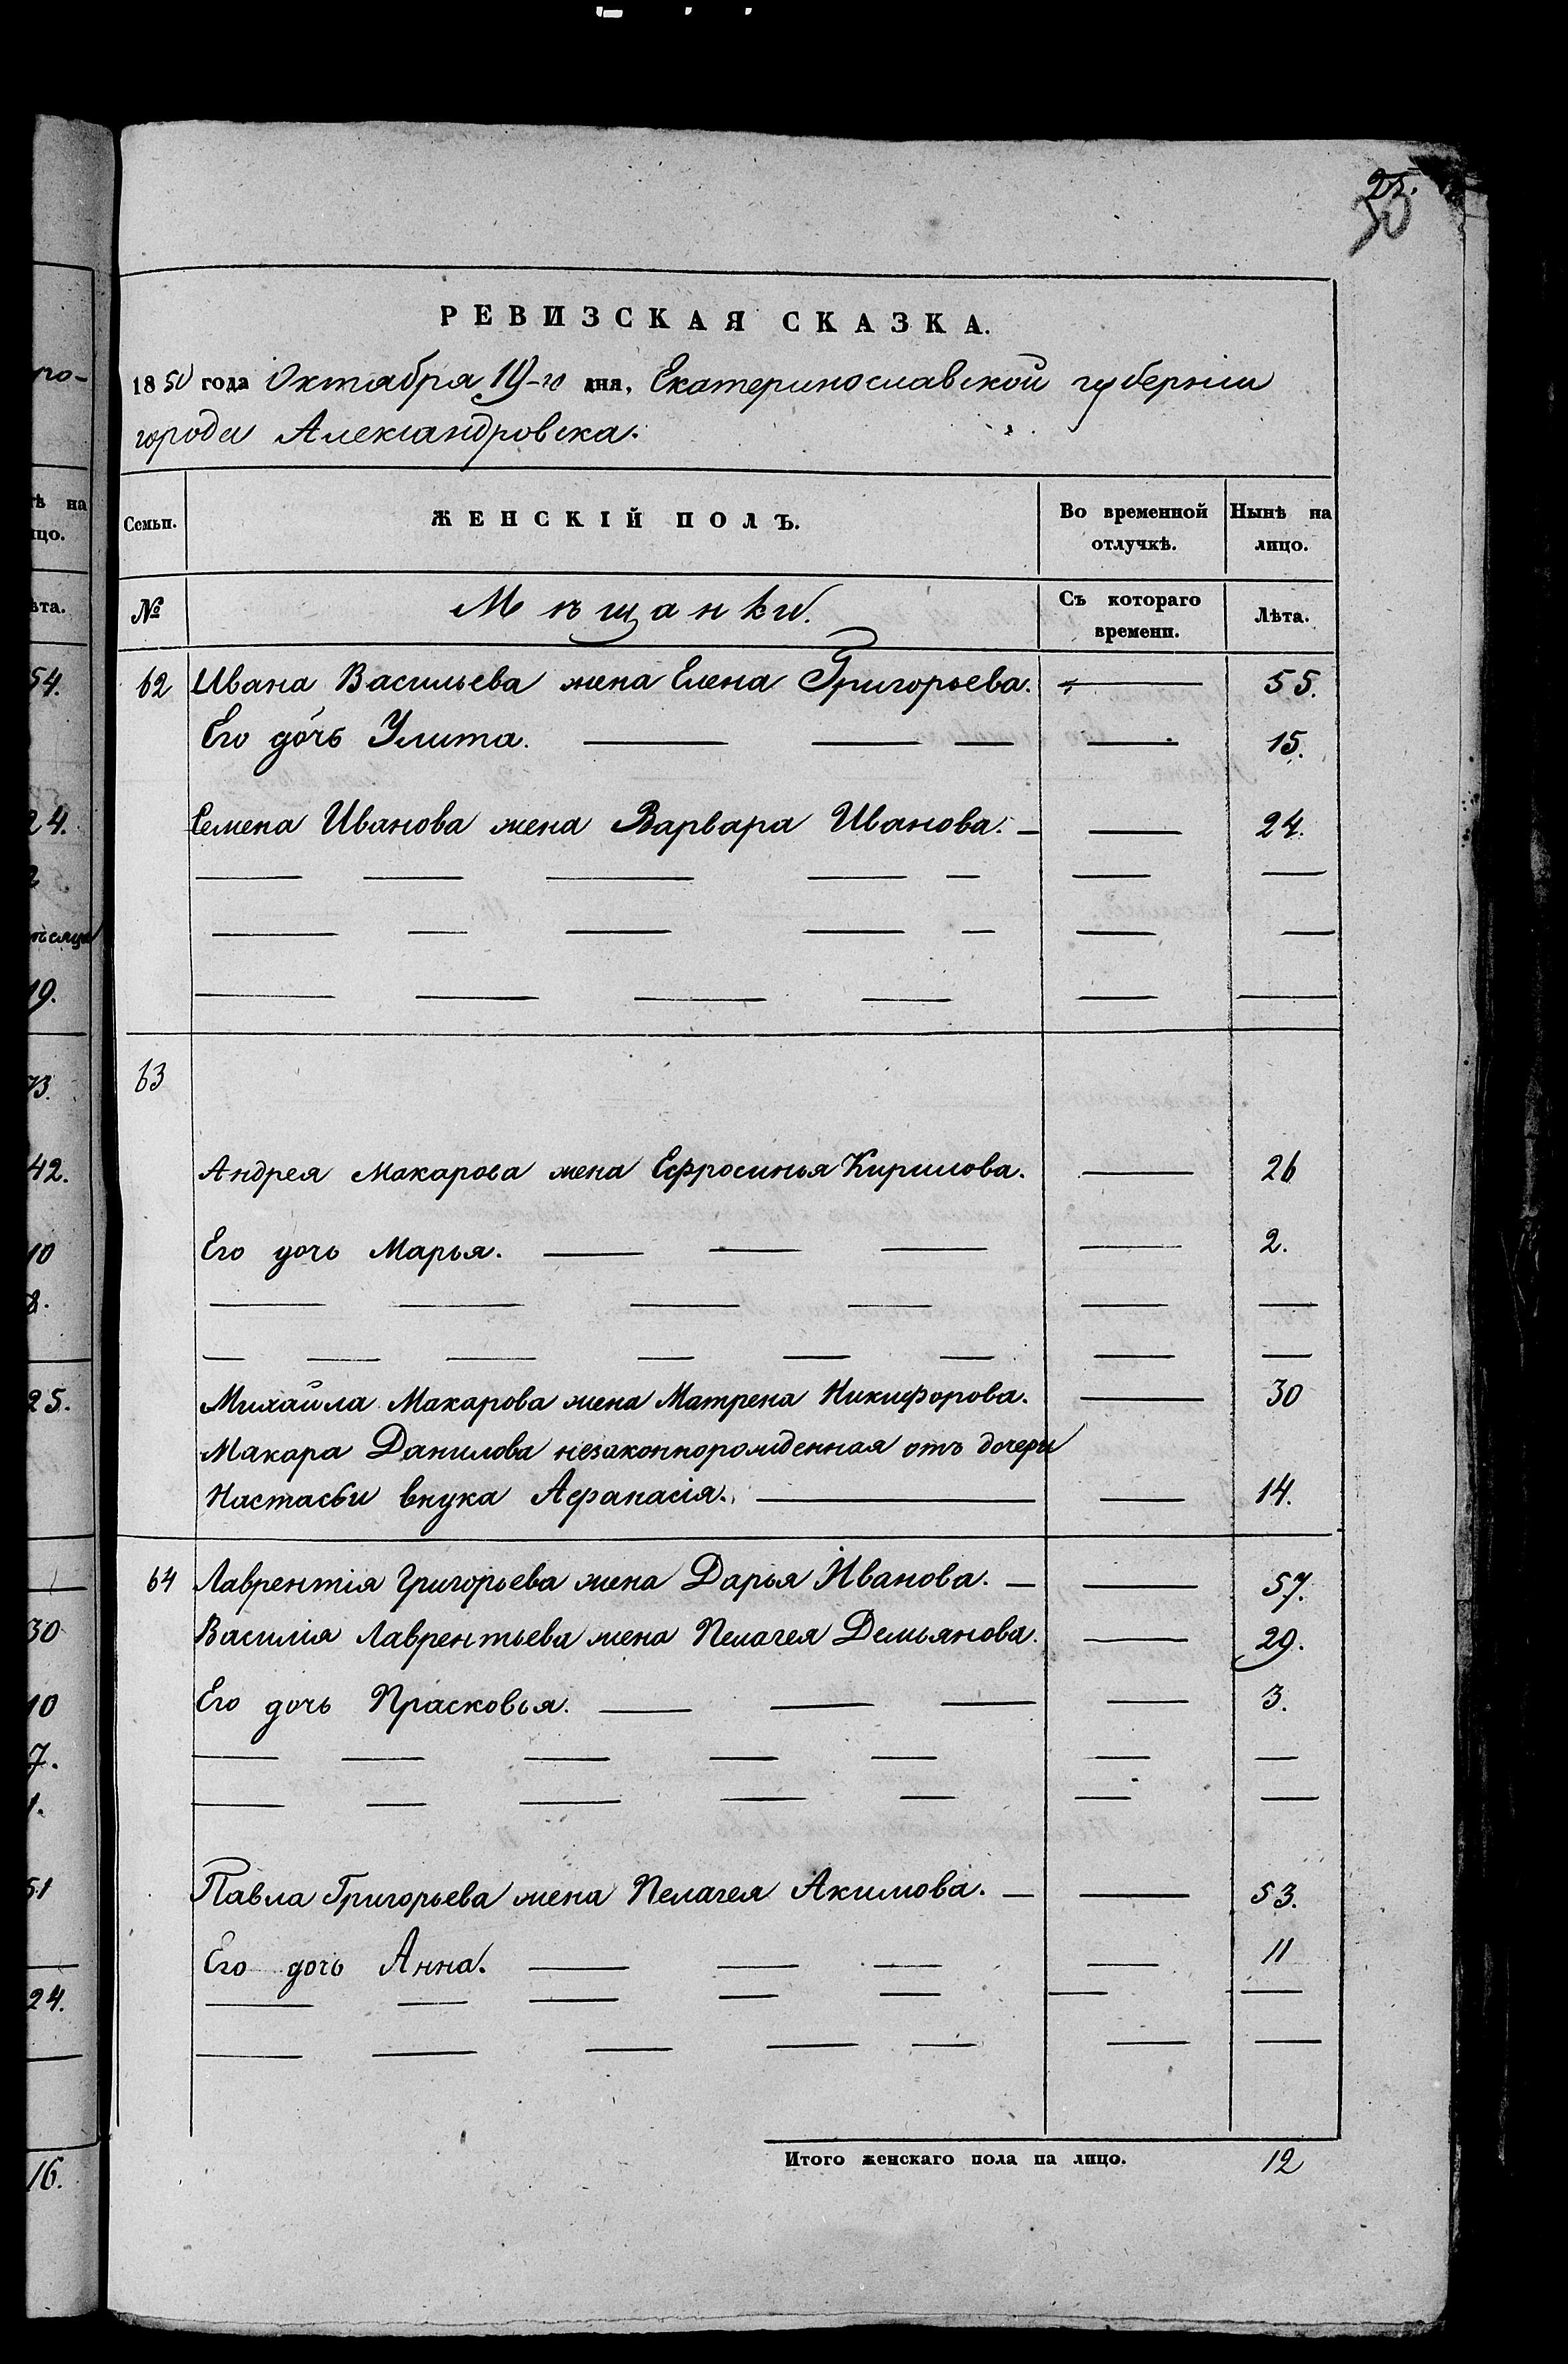 25.
30
РЕВИЗСКАЯ СКАЗКА.
1850 года Октября 19-го дня, Екатеринославской губерніи
города Александровска.
Семьи. ЖЕНСКІЙ ПОЛЪ. Во временной отлучкѣ. Нынѣ на лицо.
№ Мѣщанки. Съ котораго времени. Лѣта.
62 Ивана Васильева жена Елена Григорьева. — 55.
Его дочь Улита. — — — — 15.
Семена Иванова жена Варвара Иванова. — — 24.
63
Андрея Макарова жена Ефросинья Кирилова. — 26
Его дочь Марья. — — — — 2.
Михайла Макарова жена Матрена Никифорова. — 30
Макара Данилова незаконнорожденная отъ дочери
Настасьи внука Афанасія. — — 14.
64 Лаврентія Григорьева жена Дарья Иванова. — — 57.
Василія Лаврентьева жена Пелагея Демьянова. — 29.
Его дочь Прасковья. — — — — 3.
Павла Григорьева жена Пелагея Акимова. — — 53.
Его дочь Анна. — — — — 11
Итого женскаго пола на лицо. 12